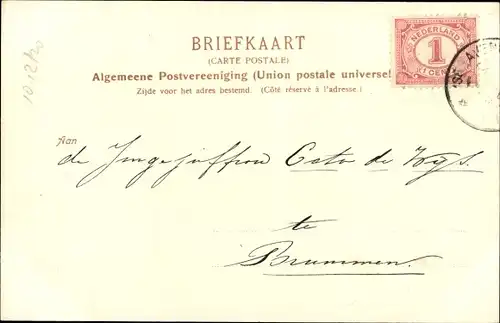 BRIEFKAART
(CARTE POSTALE)
Algemeene Postvereeniging (Union postale universel
Zijde voor het adres bestemd. (Côté réservé à l'adresse.)
NEDERLAND
1
CENT
Aan
de Jongejuffrou Cato de Vogs.
te
Brummen.